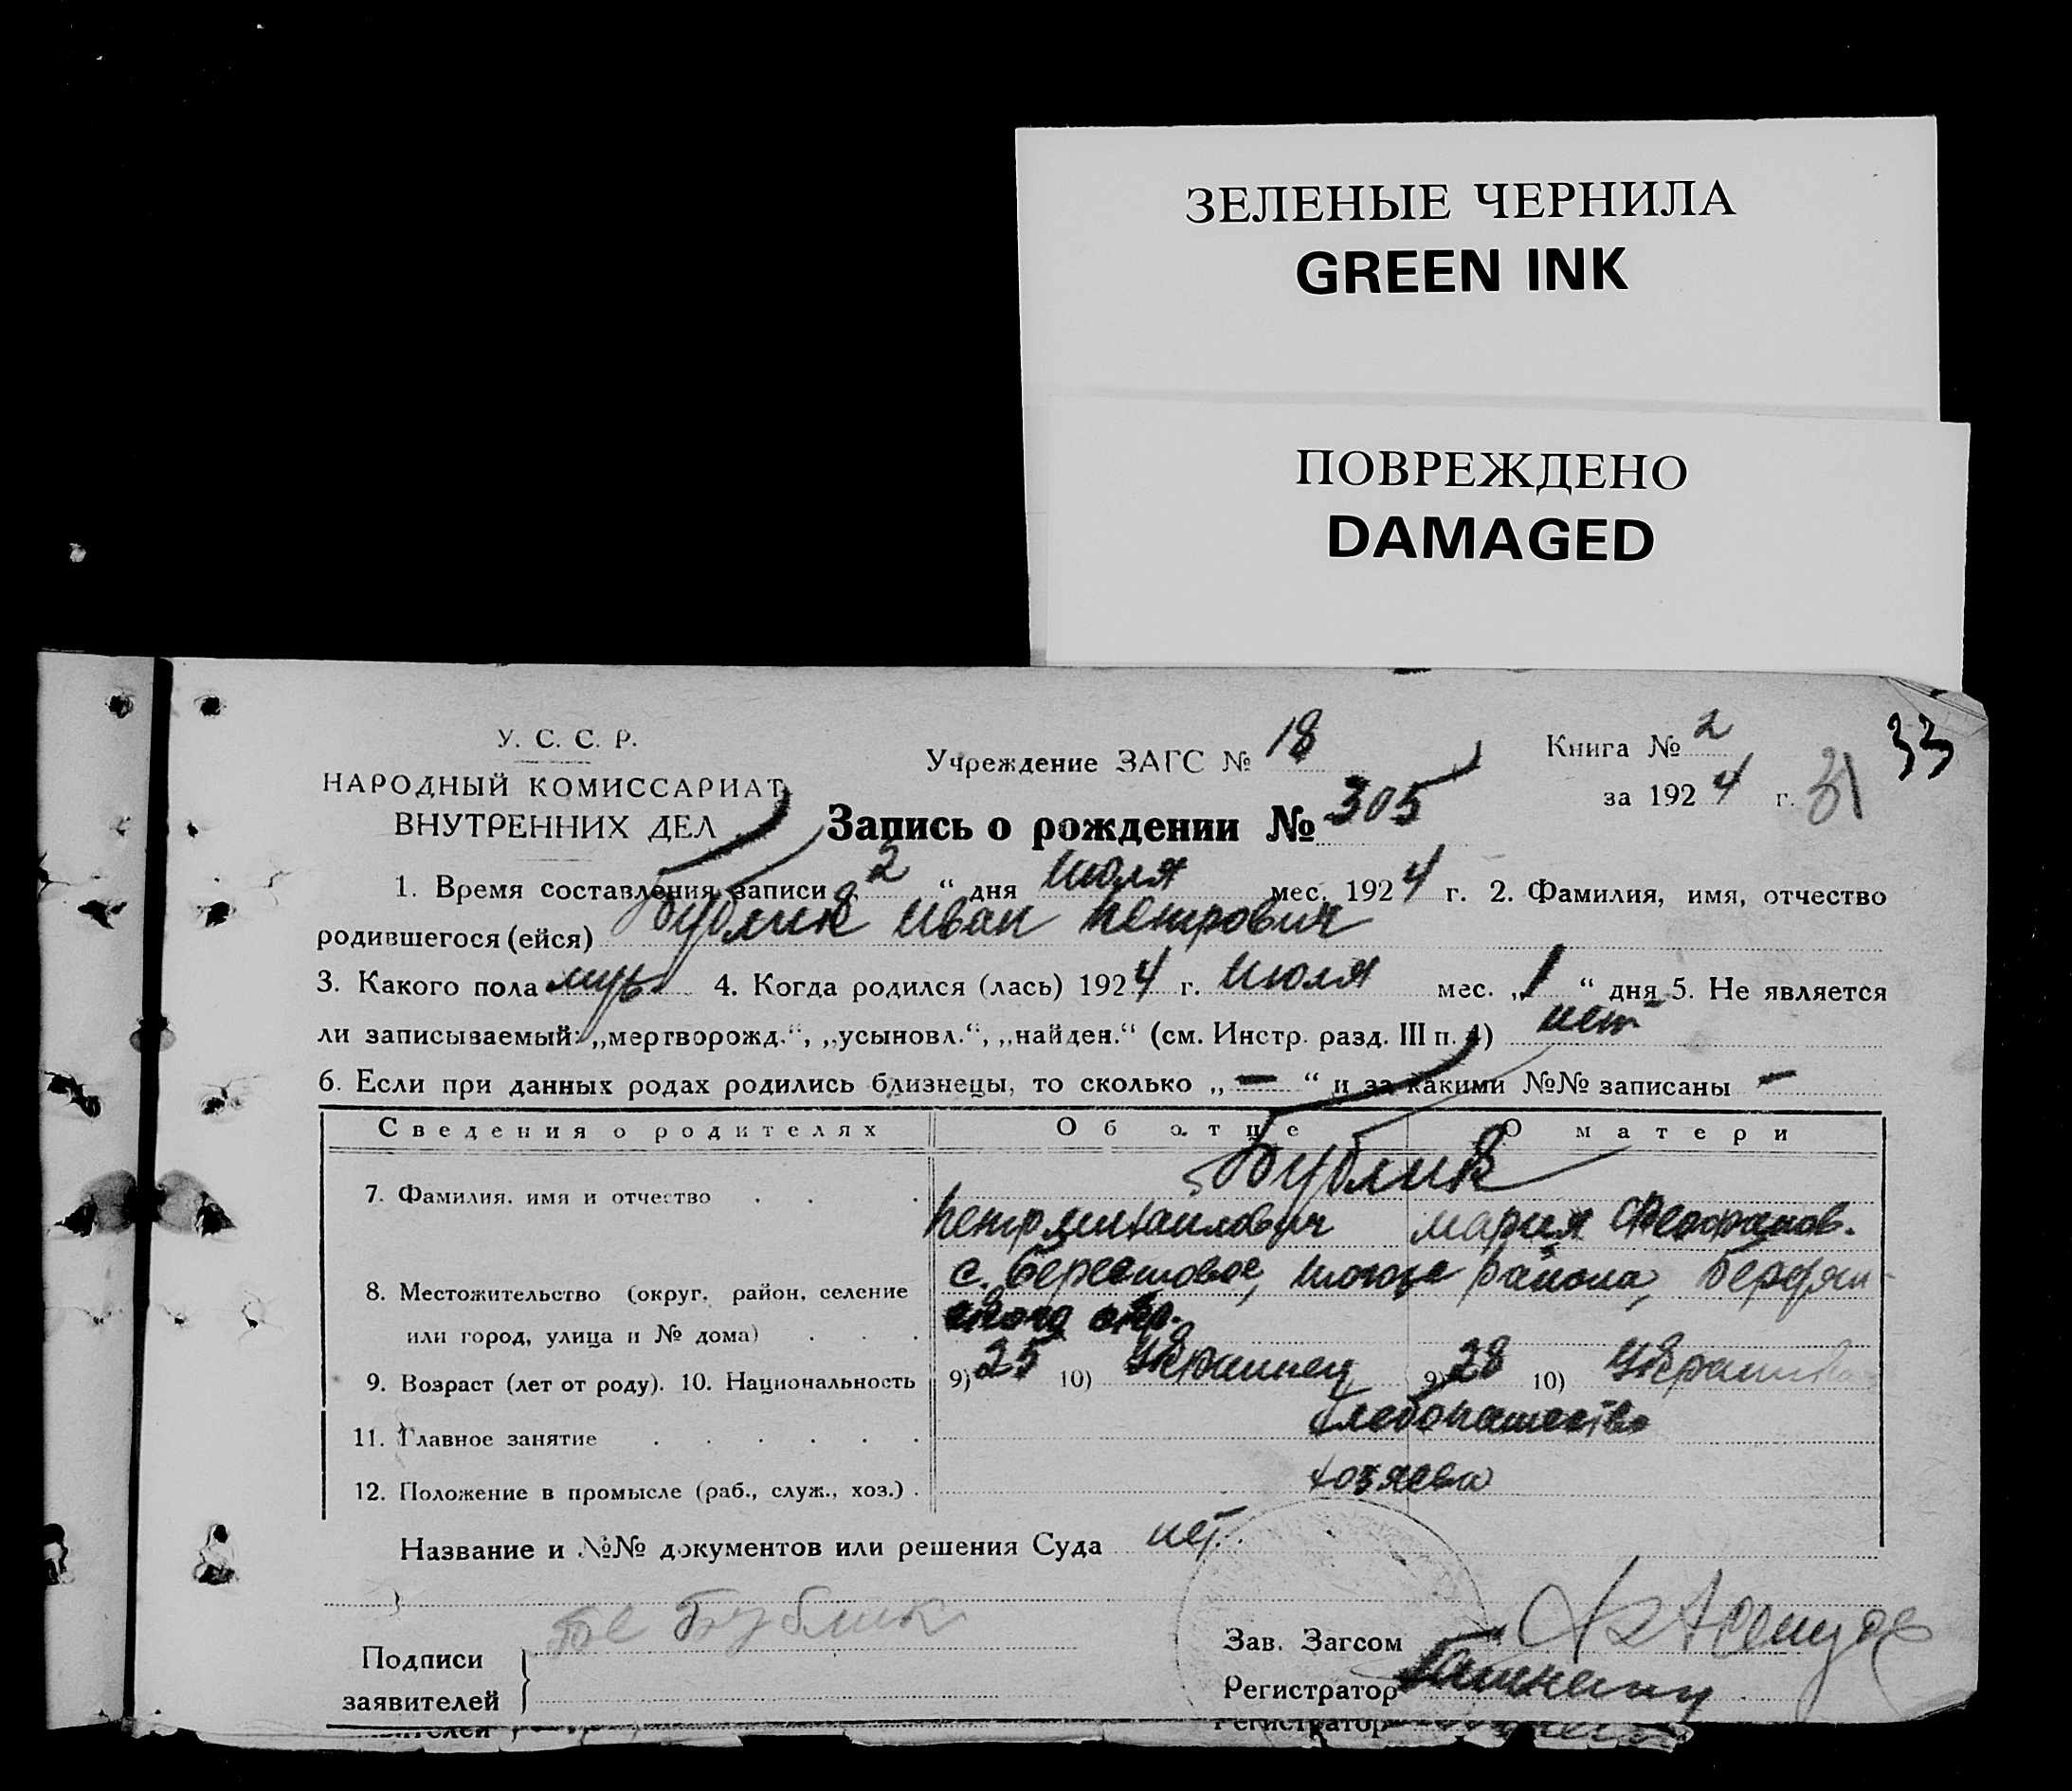 ЗЕЛЕНЫЕ ЧЕРНИЛА
GREEN INK
ПОВРЕЖДЕНО
DAMAGED
У. С. С. Р.
НАРОДНЫЙ КОМИССАРИАТ
ВНУТРЕННИХ ДЕЛ
Учреждение ЗАГС № 18
Книга № 2
за 1924 г.
31
33
Запись о рождении № 305
1. Время составления записи „2“ дня Июля мес. 1924 г. 2. Фамилия, имя, отчество
родившегося (ейся) Бублик Иван Петрович
3. Какого пола муж. 4. Когда родился (лась) 1924 г. Июля мес. „1“ дня 5. Не является
ли записываемый: „мертворожд.“, „усыновл.“, „найден.“ (см. Инстр. разд. III п. 4) нет
6. Если при данных родах родились близнецы, то сколько „—“ и за какими №№ записаны —
Сведения о родителях Об отце О матери
7. Фамилия, имя и отчество Бублик
Петр Михайлович Мария Феофанов.
8. Местожительство (округ, район, селение с. Берестовое, того же района, Бердян-
или город, улица и № дома) ского окр.
9. Возраст (лет от роду). 10. Национальность 9) 25 10) Украинец 9) 28 10) Украинка
11. Главное занятие Хлебопашество
12. Положение в промысле (раб., служ., хоз.) хозяева
Название и №№ документов или решения Суда нет.
Подписи Бублик
заявителей
Зав. Загсом
Регистратор
вителей
Регистратор